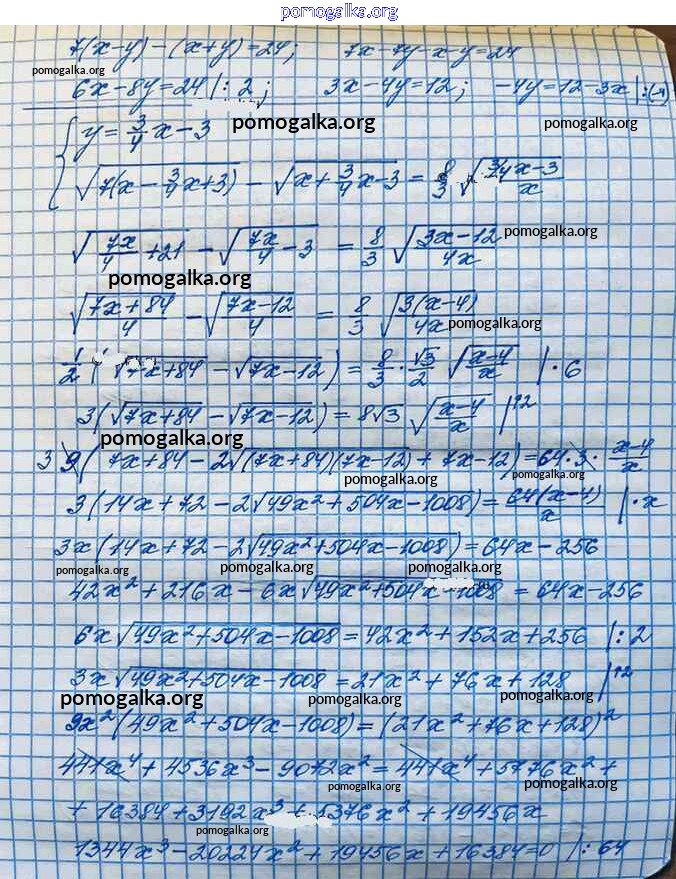 pomogalka.org
7(x-y)-(x+y)=24; 7x-7y-x-y=24
pomogalka.org
6x-8y=24|:2; 3x-4y=12; -4y=12-3x|:(-4)
y=3/4x-3 pomogalka.org pomogalka.org
√(7(x-3/4x+3)) - √(x+3/4x-3) = 8/3 √((3/4x-3)/x)
√(7x/4+21) - √(7x/4-3) = 8/3 √((3x-12)/4x) pomogalka.org
pomogalka.org
√((7x+84)/4) - √((7x-12)/4) = 8/3 √(3(x-4)/4x)
pomogalka.org
1/2(√(7x+84) - √(7x-12)) = 8/3 · √3/2 √((x-4)/x) |·6
3(√(7x+84) - √(7x-12)) = 8√3 √((x-4)/x) |↑2
pomogalka.org
3 9(7x+84-2√((7x+84)(7x-12))+7x-12)=64·3·(x-4)/x
pomogalka.org
3(14x+72-2√(49x²+504x-1008))=64(x-4)/x |·x
3x(14x+72-2√(49x²+504x-1008))=64x-256
pomogalka.org pomogalka.org pomogalka.org
42x²+216x-6x√(49x²+504x-1008)=64x-256
6x√(49x²+504x-1008)=42x²+152x+256 |:2
3x√(49x²+504x-1008)=21x²+76x+128 |↑2
pomogalka.org pomogalka.org pomogalka.org
9x²(49x²+504x-1008)=(21x²+76x+128)²
441x⁴+4536x³-9072x²=441x⁴+5776x²+
pomogalka.org pomogalka.org
+16384+3192x³+5376x²+19456x
pomogalka.org
1344x³-20224x²+19456x+16384=0 |:64